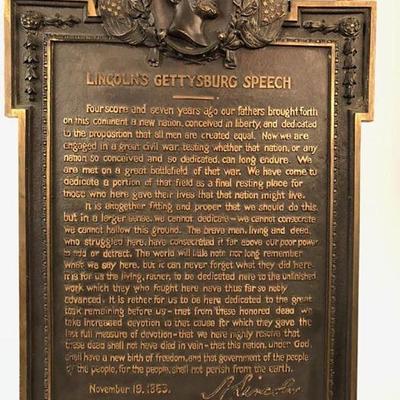 LINCOLN'S GETTYSBURG SPEECH
Four score and seven years ago our fathers brought forth
on this continent a new nation, conceived in liberty, and dedicated
to the proposition that all men are created equal. Now we are
engaged in a great civil war, testing whether that nation, or any
nation so conceived and so dedicated, can long endure. We
are met on a great battlefield of that war. We have come to
dedicate a portion of that field as a final resting place for
those who here gave their lives that that nation might live.
It is altogether fitting and proper that we should do this,
but in a larger sense, we cannot dedicate – we cannot consecrate
we cannot hallow this ground. The brave men, living and dead,
who struggled here, have consecrated it far above our poor power
to add or detract. The world will little note nor long remember
what we say here, but it can never forget what they did here.
It is for us the living, rather, to be dedicated here to the unfinished
work which they who fought here have thus far so nobly
advanced. It is rather for us to be here dedicated to the great
task remaining before us – that from these honored dead we
take increased devotion to that cause for which they gave the
last full measure of devotion – that we here highly resolve that
these dead shall not have died in vain – that this nation, under God,
shall have a new birth of freedom, and that government of the people
by the people, for the people, shall not perish from the earth.
November 19, 1863.
A. Lincoln